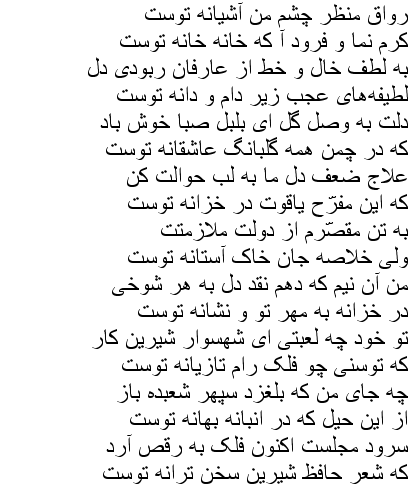 رواق منظر چشم من آشیانه توست
کرم نما و فرود آ که خانه خانه توست
به لطف خال و خط از عارفان ربودی دل
لطیفه‌های عجب زیر دام و دانه توست
دلت به وصل گل ای بلبل صبا خوش باد
که در چمن همه گلبانگ عاشقانه توست
علاج ضعف دل ما به لب حوالت کن
که این مفرّح یاقوت در خزانه توست
به تن مقصّرم از دولت ملازمتت
ولی خلاصه جان خاک آستانه توست
من آن نیم که دهم نقد دل به هر شوخی
در خزانه به مهر تو و نشانه توست
تو خود چه لعبتی ای شهسوار شیرین کار
که توسنی چو فلک رام تازیانه توست
چه جای من که بلغزد سپهر شعبده باز
از این حیل که در انبانه بهانه توست
سرود مجلست اکنون فلک به رقص آرد
که شعر حافظ شیرین سخن ترانه توست